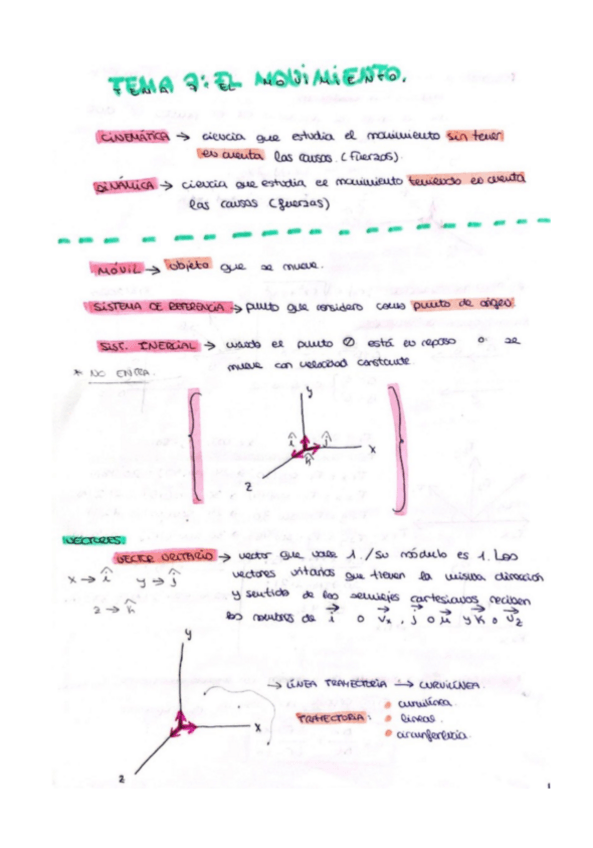 TEMA 7: EL MOVIMIENTO.
CINEMÁTICA → ciencia que estudia el movimiento sin tener
en cuenta las causas. (Fuerzas).
DINÁMICA → ciencia que estudia el movimiento teniendo en cuenta
las causas (fuerzas)
MÓVIL → objeto que se mueve.
SISTEMA DE REFERENCIA → punto que considero como punto de origen.
SIST. INERCIAL → cuando el punto 0 está en reposo o se
mueve con velocidad constante.
* NO ENTRA.
y
î ĵ
k̂ x
z
VECTORES.
VECTOR UNITARIO → vector que vale 1./su módulo es 1. Los
x → î y → ĵ vectores unitarios que tienen la misma dirección
z → k̂ y sentido de los semiejes cartesianos reciben
los nombres de i⃗ o v⃗x, j⃗ o y k⃗ o v⃗z
y
→ LÍNEA TRAYECTORIA → CURVILÍNEA.
TRAYECTORIA: • curvilínea.
x • líneas.
• circunferencia.
z
1